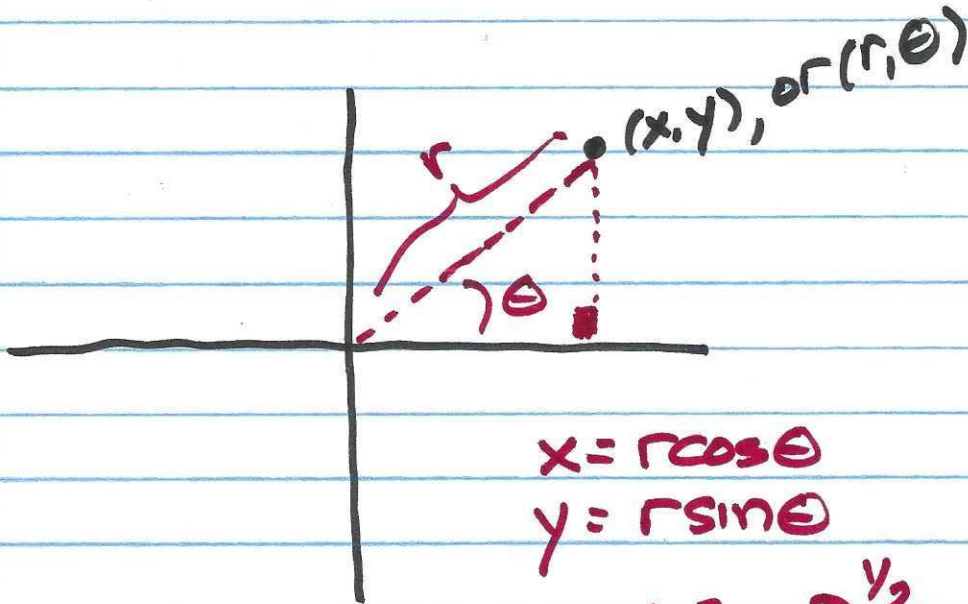 (x,y), or (r,θ)
r
θ
x = rcosθ
y = rsinθ